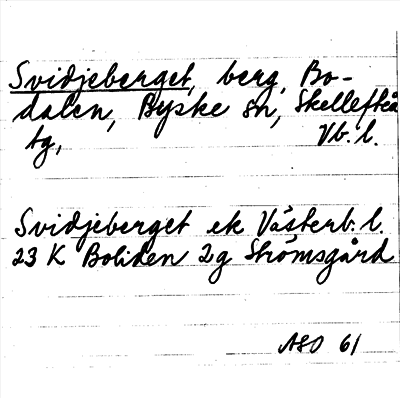 Svidjeberget, berg, Bo-
dalen, Byske sn, Skellefteå
tg, Vb. l.
Svidjeberget ek Västerb. l.
23 K Boliden 2g Strömsgård
ASO 61